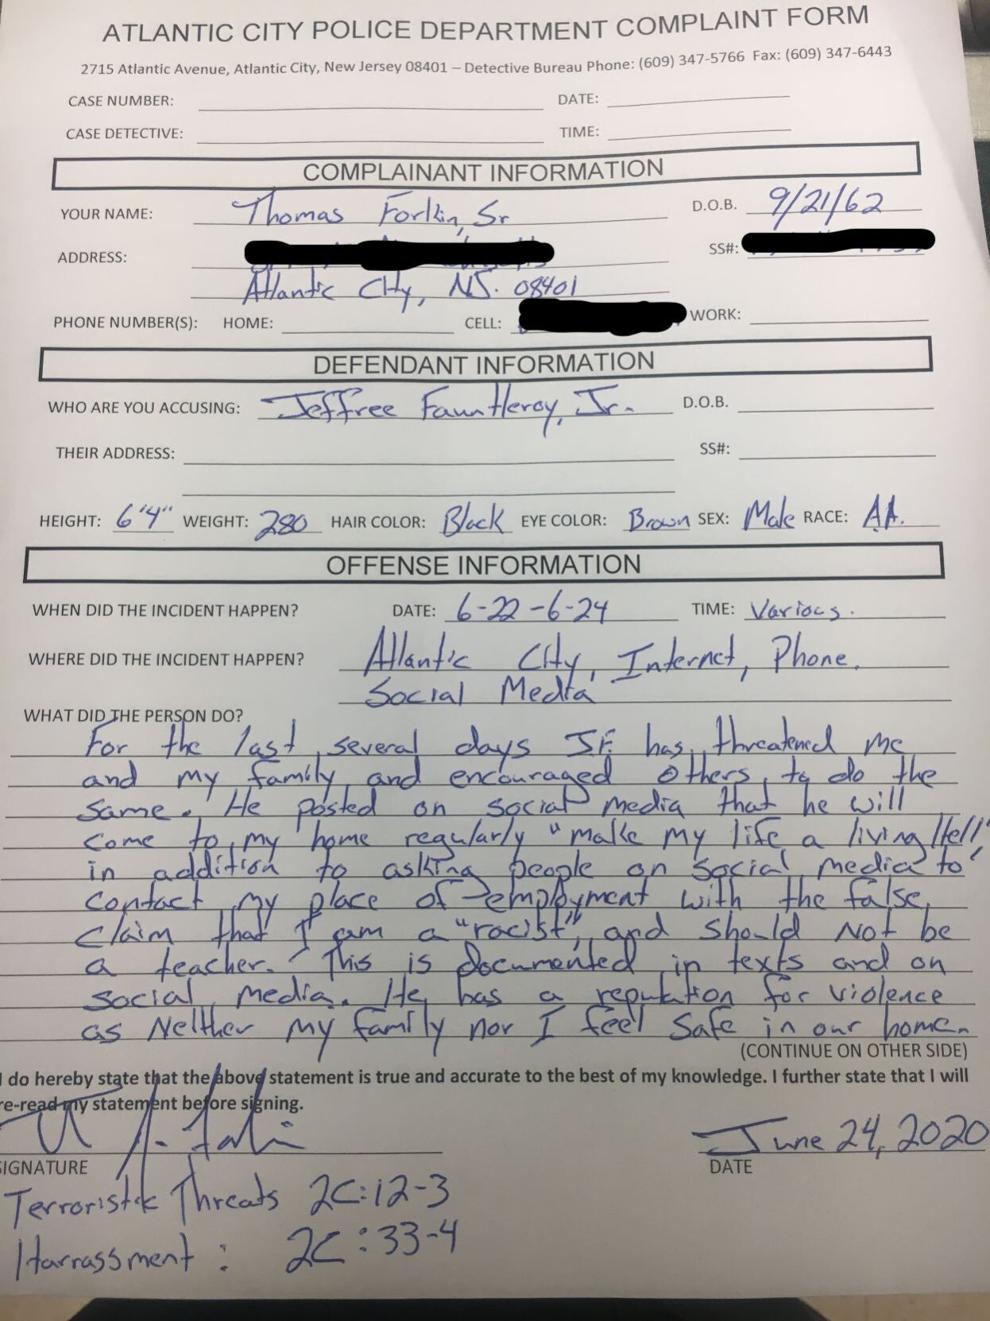 ATLANTIC CITY POLICE DEPARTMENT COMPLAINT FORM
2715 Atlantic Avenue, Atlantic City, New Jersey 08401 – Detective Bureau Phone: (609) 347-5766 Fax: (609) 347-6443
CASE NUMBER: DATE:
CASE DETECTIVE: TIME:
COMPLAINANT INFORMATION
YOUR NAME: Thomas Forkin, Sr D.O.B. 9/21/62
ADDRESS: SS#:
Atlantic City, NJ. 08401
PHONE NUMBER(S): HOME: CELL: WORK:
DEFENDANT INFORMATION
WHO ARE YOU ACCUSING: Jeffree Fauntleroy, Jr. D.O.B.
THEIR ADDRESS: SS#:
HEIGHT: 6'4" WEIGHT: 280 HAIR COLOR: Black EYE COLOR: Brown SEX: Male RACE: AA.
OFFENSE INFORMATION
WHEN DID THE INCIDENT HAPPEN? DATE: 6-22-6-24 TIME: Various.
WHERE DID THE INCIDENT HAPPEN? Atlantic City, Internet, Phone,
Social Media
WHAT DID THE PERSON DO?
For the last several days J.F. has threatened me
and my family and encouraged others to do the
same. He posted on social media that he will
come to my home regularly "make my life a living Hell"
in addition to asking people on social media to
contact my place of employment with the false
claim that I am a "racist", and should Not be
a teacher. This is documented in texts and on
social media. He has a reputation for violence
as Neither my family nor I feel safe in our home.
(CONTINUE ON OTHER SIDE)
I do hereby state that the above statement is true and accurate to the best of my knowledge. I further state that I will
re-read my statement before signing.
June 24, 2020
SIGNATURE DATE
Terroristic Threats 2C:12-3
Harrassment : 2C:33-4